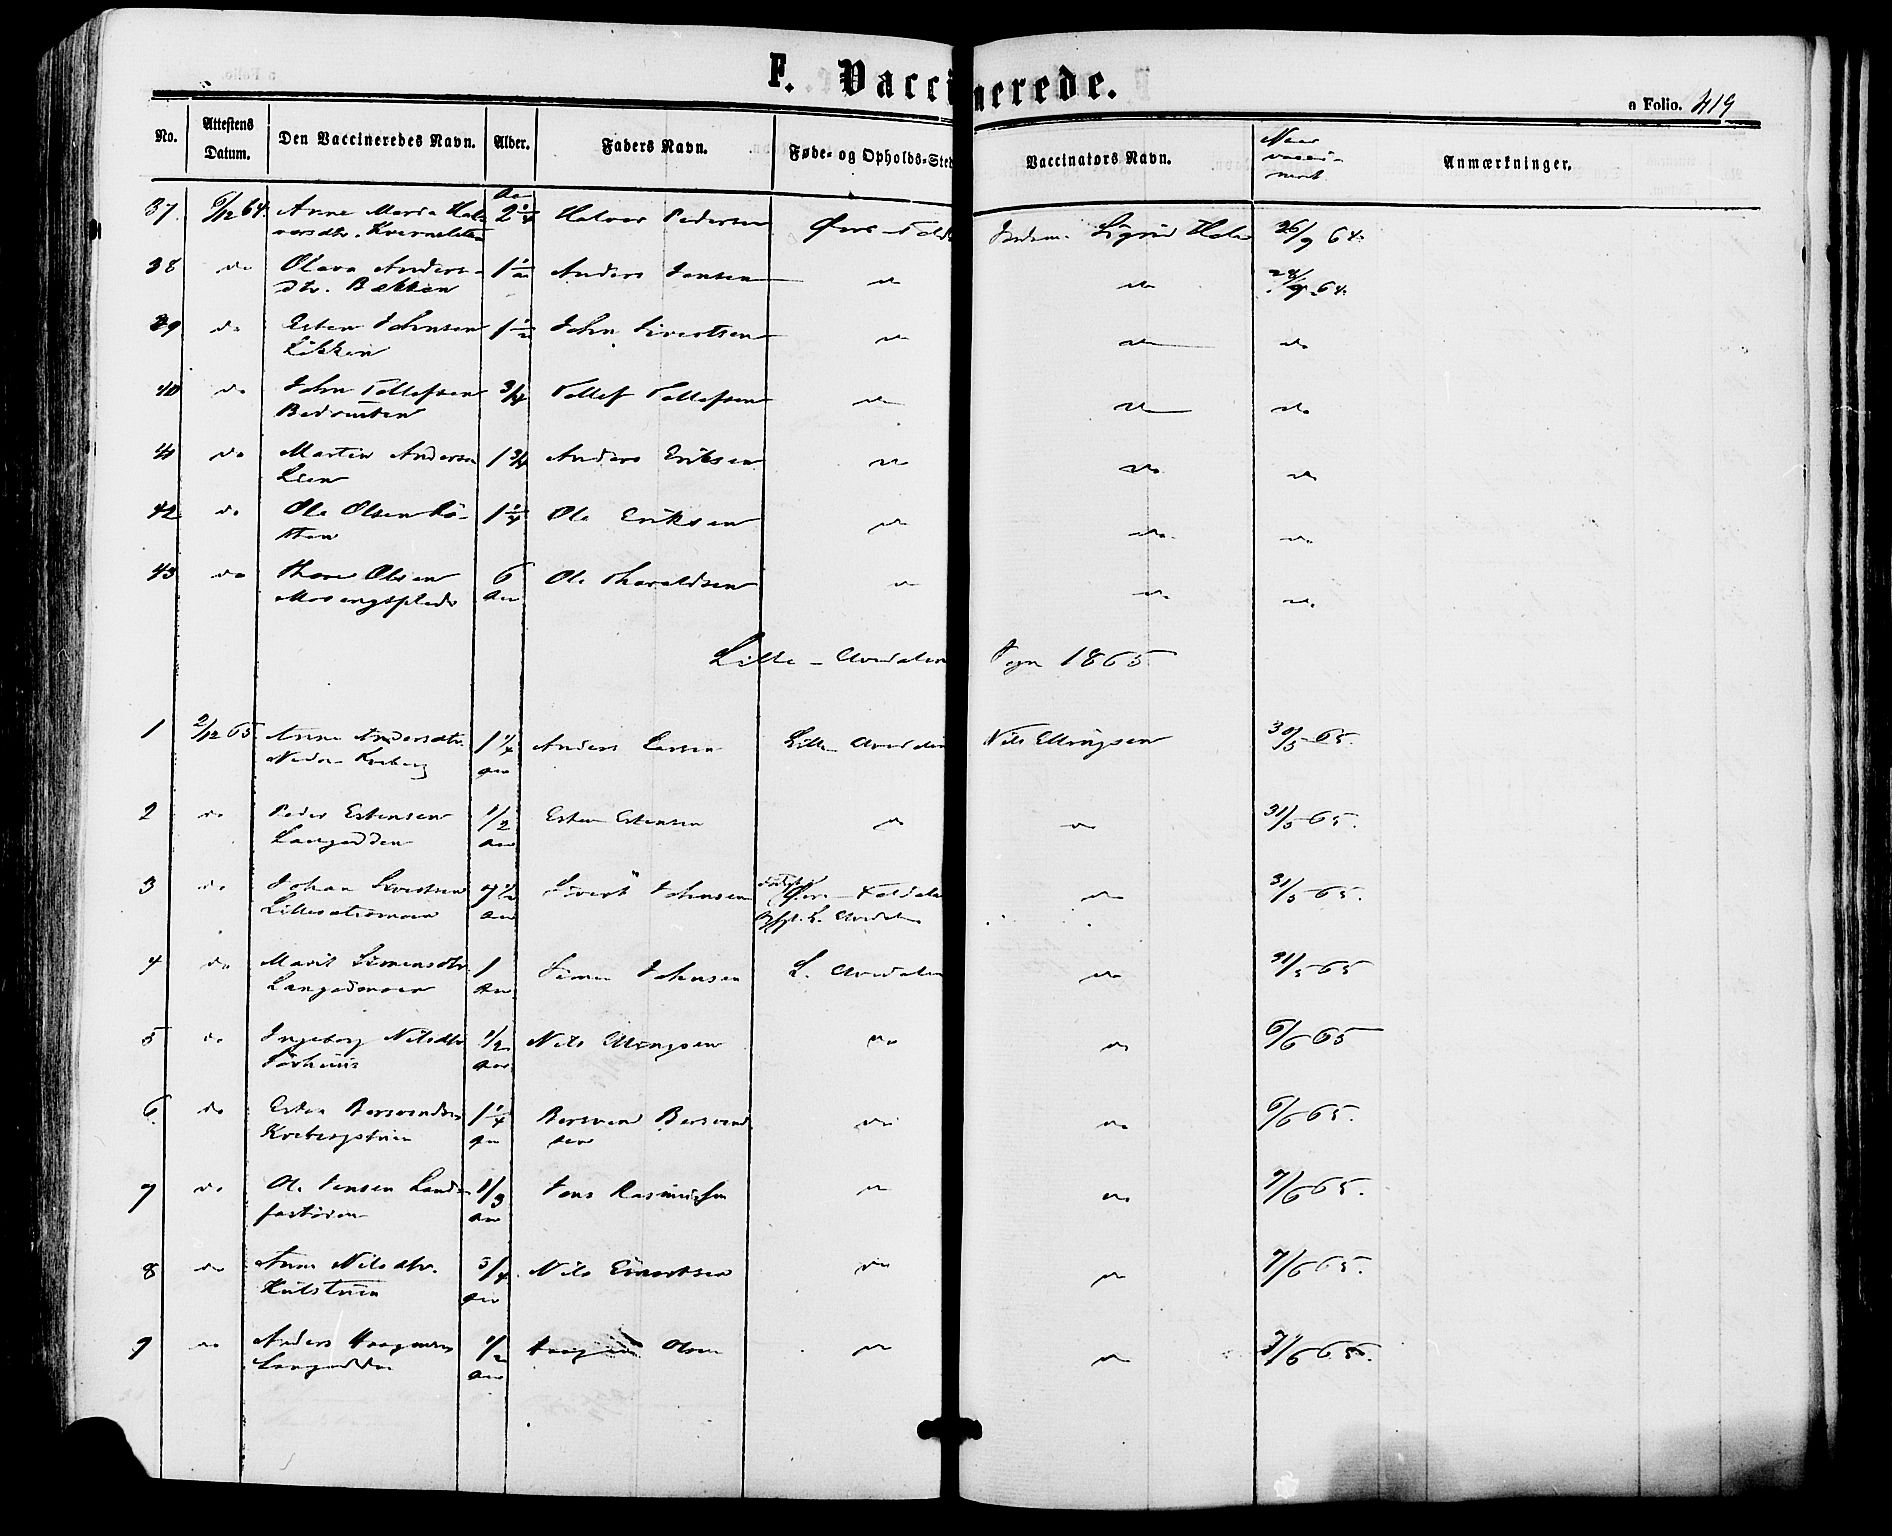 F. Vaccinerede.
a Folio. 419
No. Attestens Datum. Den Vaccineredes Navn. Alder. Faders Navn. Føde- og Opholds-Sted Vaccinators Navn. Naar vacci- neret Anmærkninger.
Aar
37. 6/12 64. Anne Maria Hal- 2 1/4 Halvor Pedersen Øvre-Folld Sigrid 26/9 64.
vorsdtr.
38 do Olava Anders- 1 1/2 Anders Jensen do do 28/9 64.
dtr. Bakken
39 do Esten Johnsen 1 1/2 John Sivertsen do do do
Løkken
40 do John Tollefsen 3/4 Tollef Tollefsen do do do
41 do Martin Andersen 1 3/4 Anders Eriksen do do do
Lien
42 do Ole Olsen 1 1/4 Ole Eriksen do do do
43 do Thore Olsen 6 Ole Tharaldsen do do do
Mosengsplads aar
Lille-Elvedalen Sogn 1865
1 2/12 65. Anne Andersdtr. 1 1/4 Anders Larsen Lille Elvedalen Nils Ellingsen 30/5 65.
Nedre Kveberg aar
2 do Peder Estensen 1/2 Esten Estensen do do 31/5 65.
Langodden aar
3 do Johan Sivertsen 7 1/2 Sivert Johnsen født Øvre-Foldalen do 31/5 65.
aar L. Elvedalen
4 do Marit Simensdtr. 1 Simen Johnsen L. Elvedalen do 31/5 65
Langodmoen aar
5 do Ingeborg Nilsdtr 1/2 Nils Ellingsen do do 6/6 65
aar
6 do Esten Bersvendsen 1 1/4 Bersvend Bersvend- do do 6/6 65.
Kvebergstuen aar sen
7 do Ole Jensen 1/3 Jens Rasmussen do do 7/6 65.
aar
8 do Anne Nilsdtr. 3/4 Nils Sivertsen do do 7/6 65.
aar
9 do Anders Haagensen 1/2 Haagen Olsen do do 7/6 65.
Langodden aar